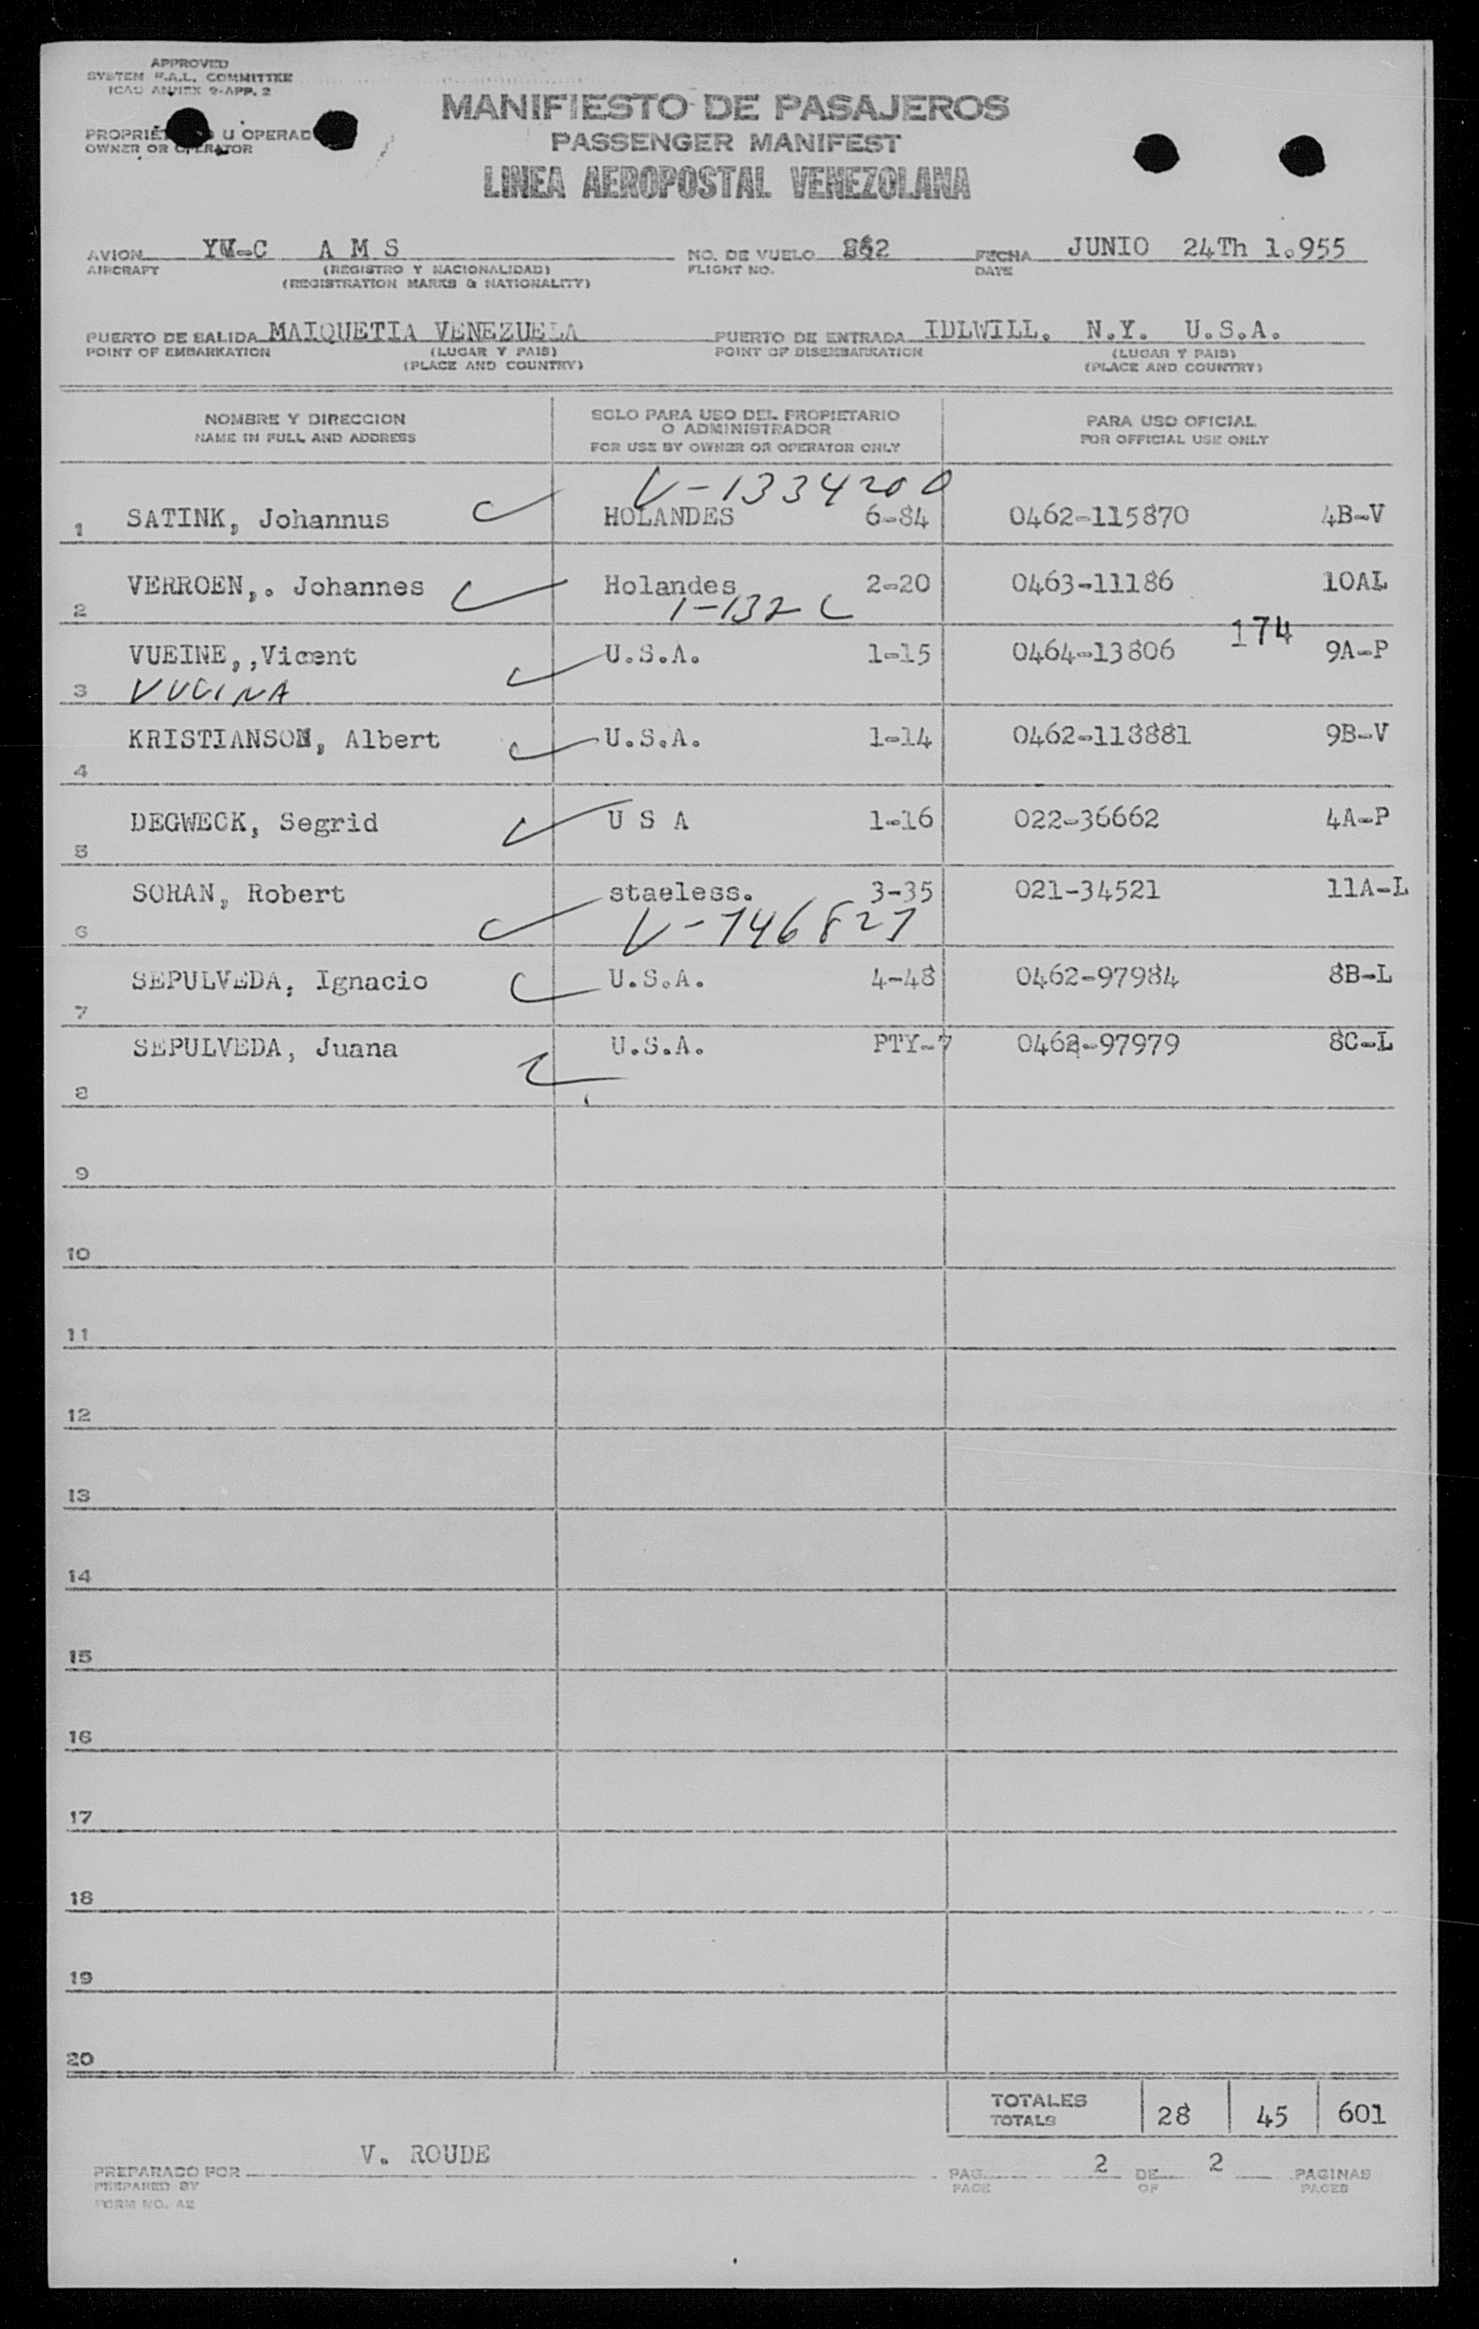 APPROVED
SYSTEM F.A.L. COMMITTEE
ICAO ANNEX 9-APP. 2
MANIFIESTO DE PASAJEROS
PASSENGER MANIFEST
LINEA AEROPOSTAL VENEZOLANA
U OPERAD
OWNER OR OPERATOR
AVION YV-C A M S NO. DE VUELO 862 FECHA JUNIO 24Th 1.955
AIRCRAFT (REGISTRO Y NACIONALIDAD) FLIGHT NO. DATE
(REGISTRATION MARKS & NATIONALITY)
PUERTO DE SALIDA MAIQUETIA VENEZUELA PUERTO DE ENTRADA IDLWILL. N.Y. U.S.A.
POINT OF EMBARKATION (LUGAR Y PAIS) POINT OF DISEMBARKATION (LUGAR Y PAIS)
(PLACE AND COUNTRY) (PLACE AND COUNTRY)
NOMBRE Y DIRECCION SOLO PARA USO DEL PROPIETARIO PARA USO OFICIAL
O ADMINISTRADOR
NAME IN FULL AND ADDRESS FOR USE BY OWNER OR OPERATOR ONLY FOR OFFICIAL USE ONLY
V-1334200
1 SATINK, Johannus HOLANDES 6-84 0462-115870 4B-V
VERROEN,. Johannes Holandes 2-20 0463-11186 10AL
2 1-132 C
174
VUEINE,,Vicent U.S.A. 1-15 0464-13806 9A-P
3 VUCINA
KRISTIANSON, Albert U.S.A. 1-14 0462-113881 9B-V
4
DEGWECK, Segrid U S A 1-16 022-36662 4A-P
5
SORAN, Robert staeless. 3-35 021-34521 11A-L
6 V-746827
SEPULVEDA, Ignacio U.S.A. 4-48 0462-97984 8B-L
7
SEPULVEDA, Juana U.S.A. PTY-7 0462-97979 8C-L
8
9
10
11
12
13
14
15
16
17
18
19
20
TOTALES 28 45 601
TOTALS
V. ROUDE
PREPARADO POR PAG. 2 DE 2 PAGINAS
PREPARED BY PAGE OF PAGES
FORM NO. A2